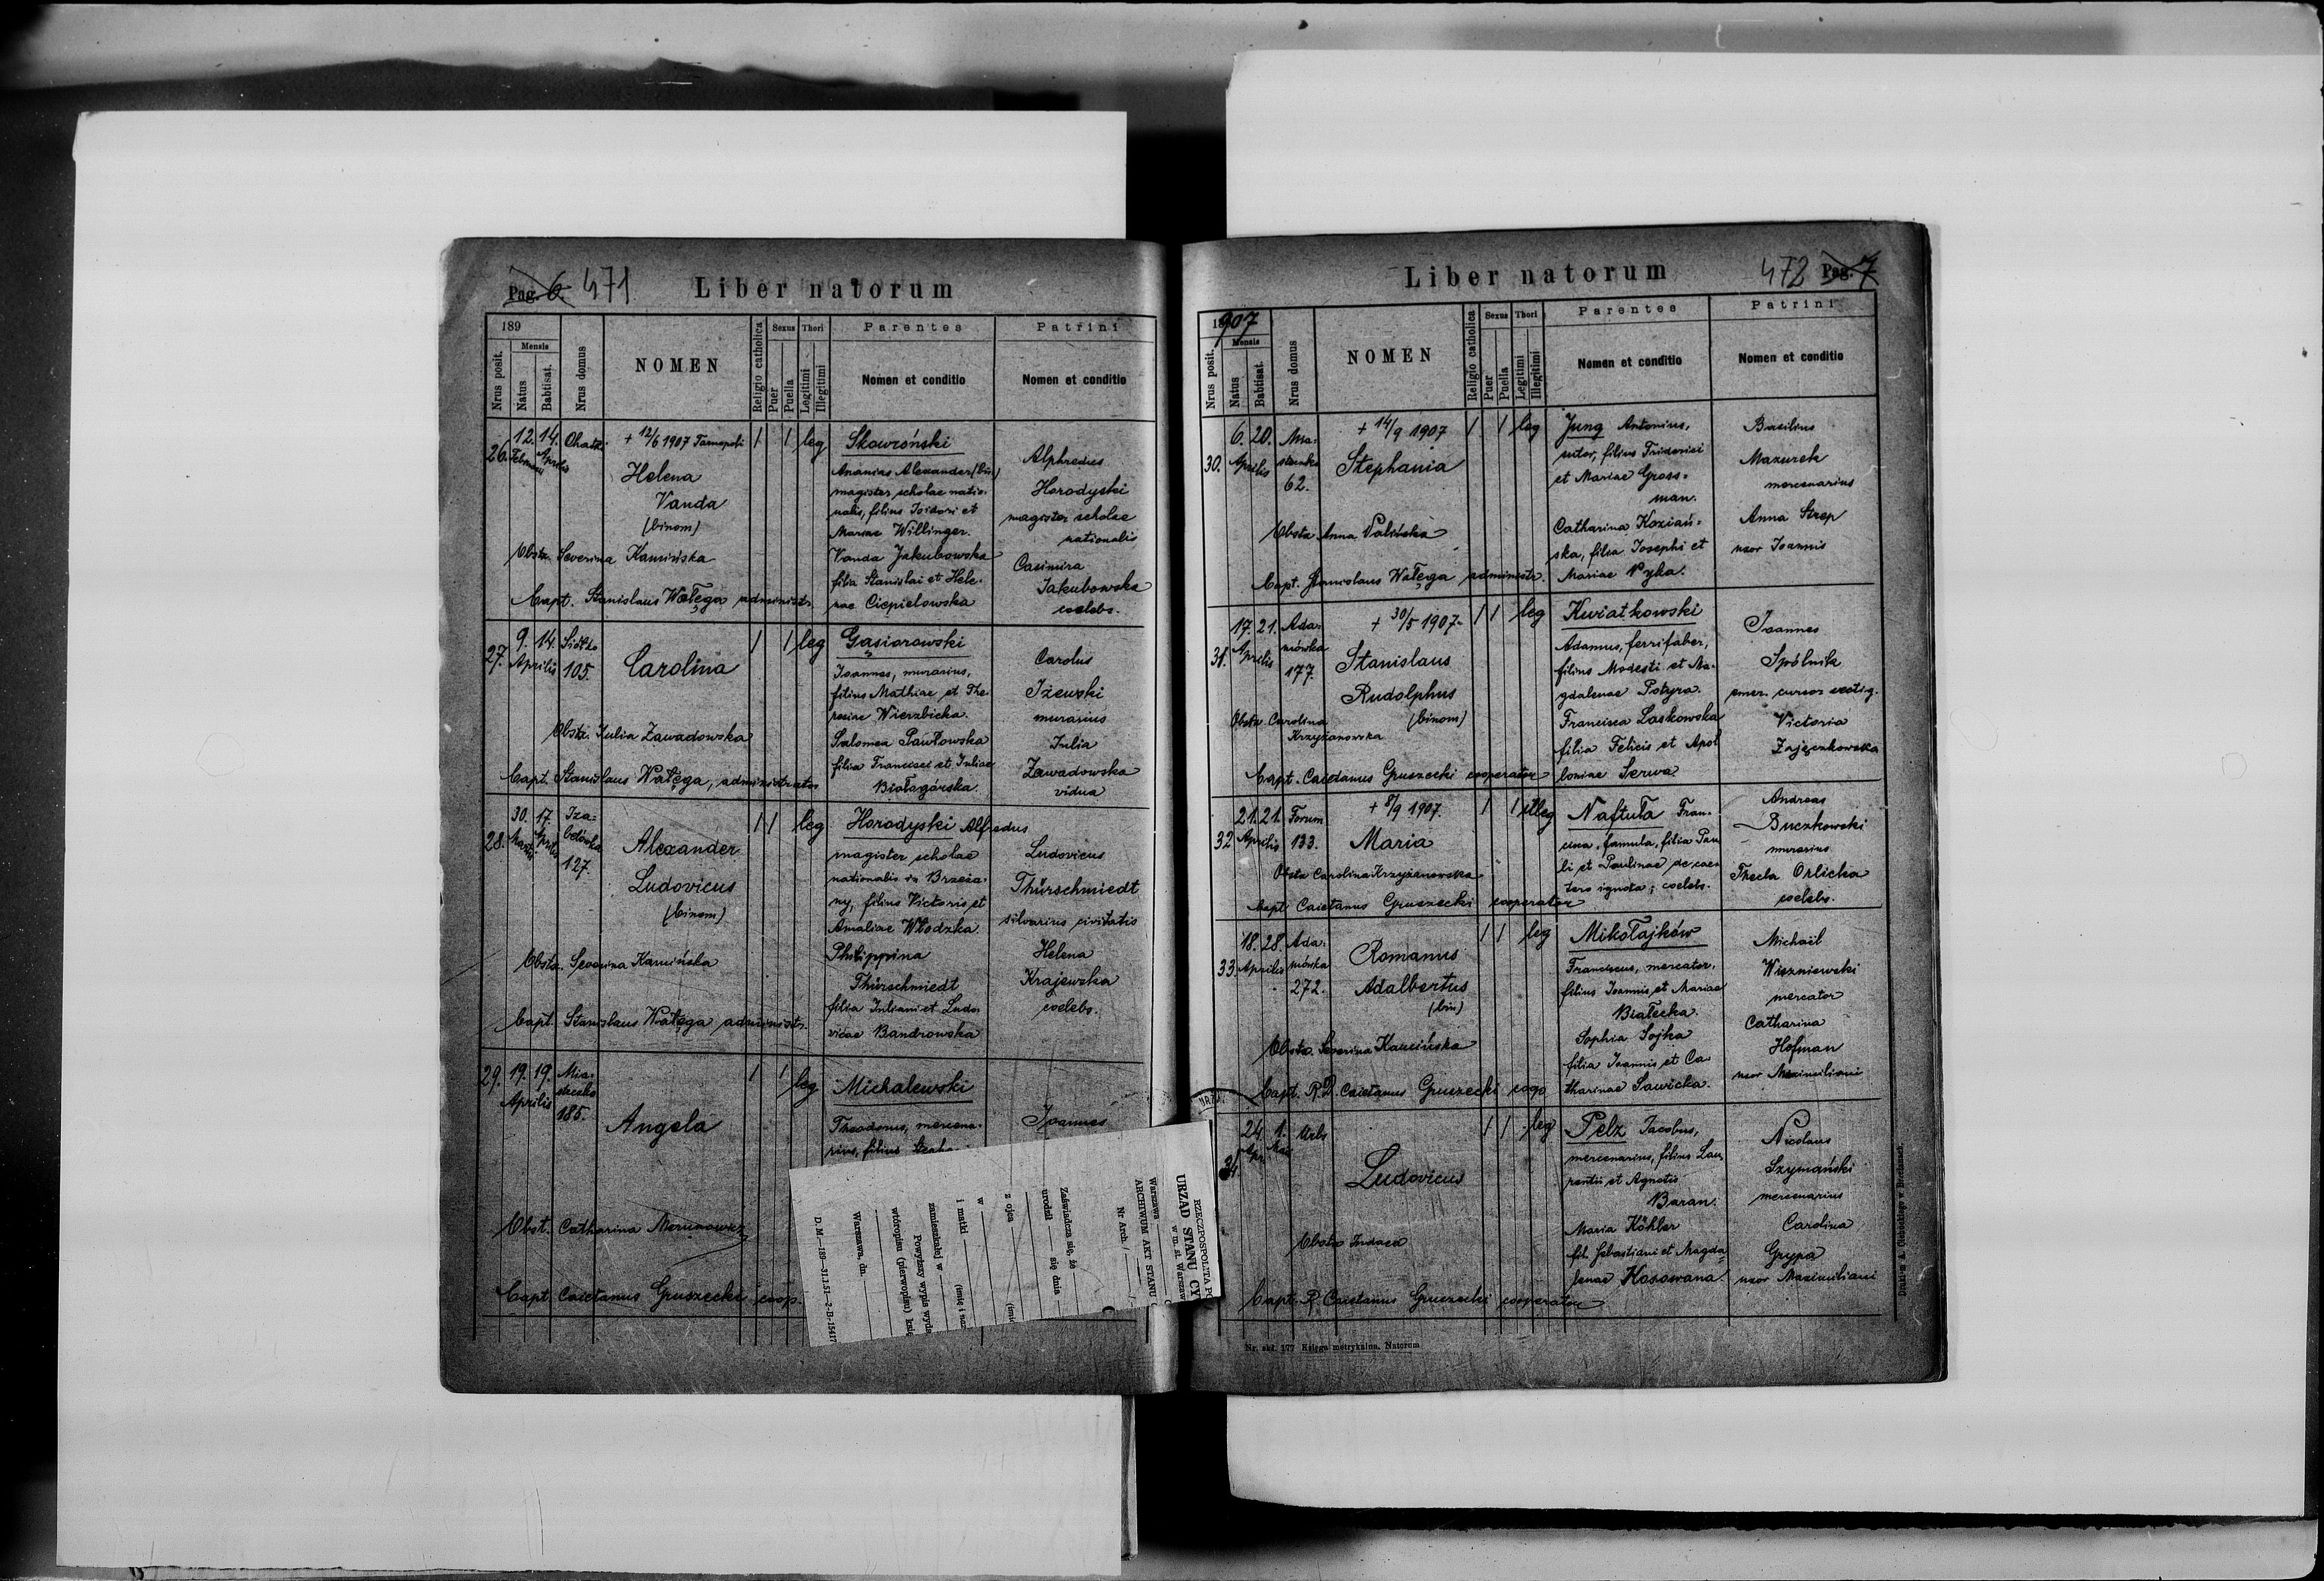 Pag. 6. 471
Liber natorum
189
Nrus posit.
Mensis
Natus
Babtisat.
Nrus domus
NOMEN
Religio catholica
Sexus
Puer
Puella
Thori
Legitimi
Illegitimi
Parentes
Nomen et conditio
Patrini
Nomen et conditio
26.
12. 14.
Februarii Aprilis
+ 12/6 1907 Tarnopoli
Helena
Vanda
(binom)
1 1 leg
Obstr. Severina Kamińska
bapt. Stanislaus Wałęga administr.
Skowroński
Ananias Alexander (bin)
magister scholae natio-
nalis, filius Isidori et
Mariae Willinger.
Vanda Jakubowska
filia Stanislai et Hele-
nae Ciepielowska
Alphredus
Horodyski
magister scholae
nationalis
Casimira
Jakubowska
coelebs.
27.
9. 14.
Aprilis
105.
Carolina
1 1 leg
Obstr. Julia Zawadowska
bapt. Stanislaus Wałęga, administrator
Gąsiorowski
Joannes, murarius,
filius Mathiae et The-
resiae Wierzbicka.
Salomea Pawłowska
filia Francisci et Juliae
Białogórska.
Carolus
Iżewski
murarius
Julia
Zawadowska
vidua
28.
30. 17.
Martii Aprilis
Iza-
belówka
127.
Alexander
Ludovicus
(binom)
1 1 leg
Obstr. Severina Kamińska
bapt. Stanislaus Wałęga administr.
Horodyski Alfredus
magister scholae
nationalis in Brzeża-
ny, filius Victoris et
Amaliae Włodzka.
Philippina
Thürschmiedt
filia Juliani et Ludo-
vicae Bandrowska
Ludovicus
Thürschmiedt
silvarius civitatis
Helena
Krajewska
coelebs.
29.
19. 19.
Aprilis
Mia-
steczko
185.
Angela
1 1 leg
Obst. Catharina
bapt. Caietanus Gruszecki coop.
Michalewski
Theodorus, mercena-
rius, filius
Joannes
RZECZPOSPOLITA PO
URZĄD STANU CY
w m. st. Warszaw
Warszawa
ARCHIWUM AKT STANU C
Nr Arch. /
Zaświadcza się, że
urodził się dnia
z ojca (imię
w
i matki (imię i naz
zamieszkałej w
Powyższy wypis wyda
wtóropisu (pierwopisu) księ
Warszawa, dn.
Liber natorum
472 Pag. 7
1907
Nrus posit.
Mensis
Natus
Babtisat.
Nrus domus
NOMEN
Religio catholica
Sexus
Puer
Puella
Thori
Legitimi
Illegitimi
Parentes
Nomen et conditio
Patrini
Nomen et conditio
30.
6. 20.
Aprilis
62.
+ 14/9 1907
Stephania
1 1 leg
Obstr. Anna
bapt. Stanislaus Wałęga administr.
Jung Antonius,
sutor, filius Friderici
et Mariae Gross-
man.
Catharina Koziań-
ska, filia Josephi et
Mariae
Basilius
Mazurek
mercenarius
Anna Strep
uxor Joannis
31.
17. 21.
Aprilis
Ada-
mówka
177.
+ 30/5 1907.
Stanislaus
Rudolphus
(binom)
1 1 leg
Obstr. Carolina
Krzyżanowska
bapt. Caietanus Gruszecki cooperator
Kwiatkowski
Adamus, ferrifaber,
filius Modesti et Ma-
gdalenae Potyra.
Francisca Laskowska
filia Felicis et Apol
loniae Serwa.
Joannes
Spólnik
emer. cursor vectig.
Victoria
Zajączkowska
32
21. 21.
Aprilis
Forum
133.
+ 8/9 1907.
Maria
1 1 illeg
Obstr Carolina Krzyżanowska
bapt. Caietanus Gruszecki cooperator
Naftuła Fran-
cisca, famula, filia Pau
li et Paulinae de cae-
tero ignota; coelebs.
Andreas
Buczkowski
murarius
Thecla Orlicka
coelebs.
33.
18. 28.
Aprilis
Ada-
mówka
272.
Romanus
Adalbertus
(bin)
1 1 leg
Obstr. Severina Kamińska
bapt. R.D. Caietanus Gruszecki coop.
Mikołajków
Franciscus, mercator,
filius Joannis et Mariae
Białecka.
Sophia Sojka
filia Joannis et Ca-
tharinae Sawicka.
Michaël
Wiszniewski
mercator
Catharina
Hofman
uxor Maximiliani
34
24. 1.
Apr. Maii
Urbs
Ludovicus
1 1 leg
Obstr Judaea
bapt. R. Caietanus Gruszecki cooperator
Pelz Jacobus,
mercenarius, filius Lau-
rentii et Agnetis
Baran.
Maria Köhler
fil. Sebastiani et Magda-
lenae Kosowana.
Nicolaus
Szymański
mercenarius
Carolina
Grypa
uxor Maximiliani
Nr. skł. 177 Księga metrykalna. Natorum